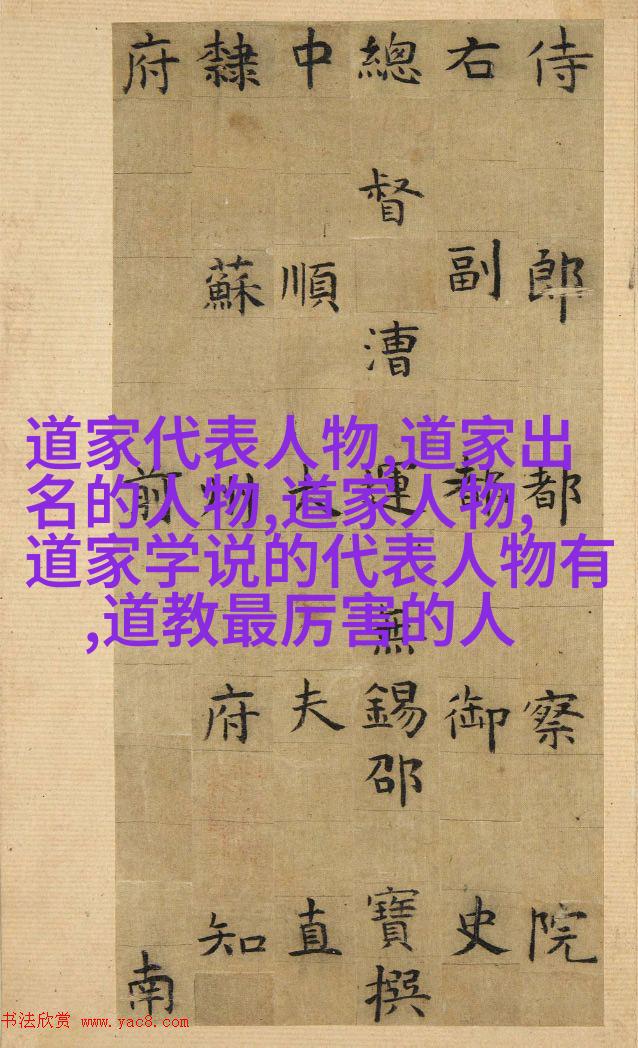 侍郎都察院
右副都御史
總督漕運無錫邵寶撰
中順大夫直
隸蘇州府知
府前南
道家代表人物,道家出
名的人物,道家人物,
道家学说的代表人物有
,道教最厉害的人
书法欣赏 www.yac8.com